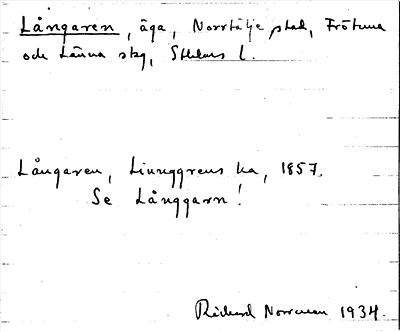 Långaren, äga, Norrtälje stad, Frötuna
och Länna skg, Sthlms l.
Långaren, Ljunggrens ka, 1857.
Se Långgarn!
Rickard Norrman 1934.